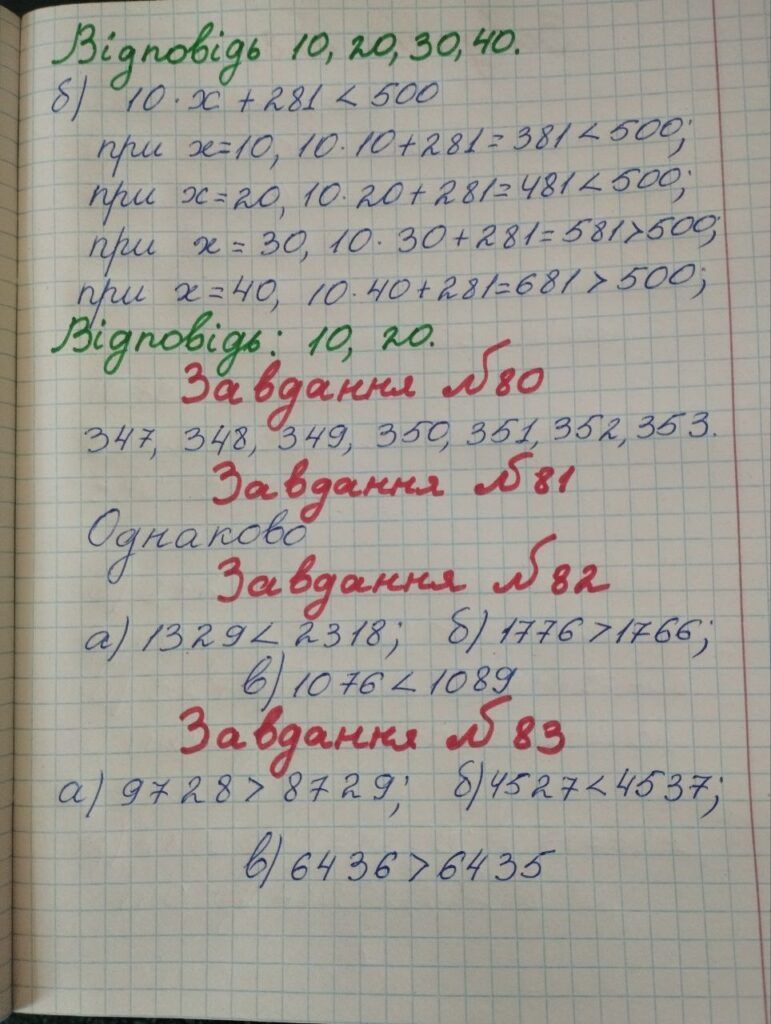 Відповідь 10, 20, 30, 40.
б) 10·x + 281 < 500
при x=10, 10·10+281=381<500;
при x=20, 10·20+281=481<500;
при x=30, 10·30+281=581>500;
при x=40, 10·40+281=681>500;
Відповідь: 10, 20.
Завдання №80
347, 348, 349, 350, 351, 352, 353.
Завдання №81
Однаково
Завдання №82
а) 1329<2318; б) 1776>1766;
в) 1076<1089
Завдання №83
а) 9728>8729; б) 4527<4537;
в) 6436>6435